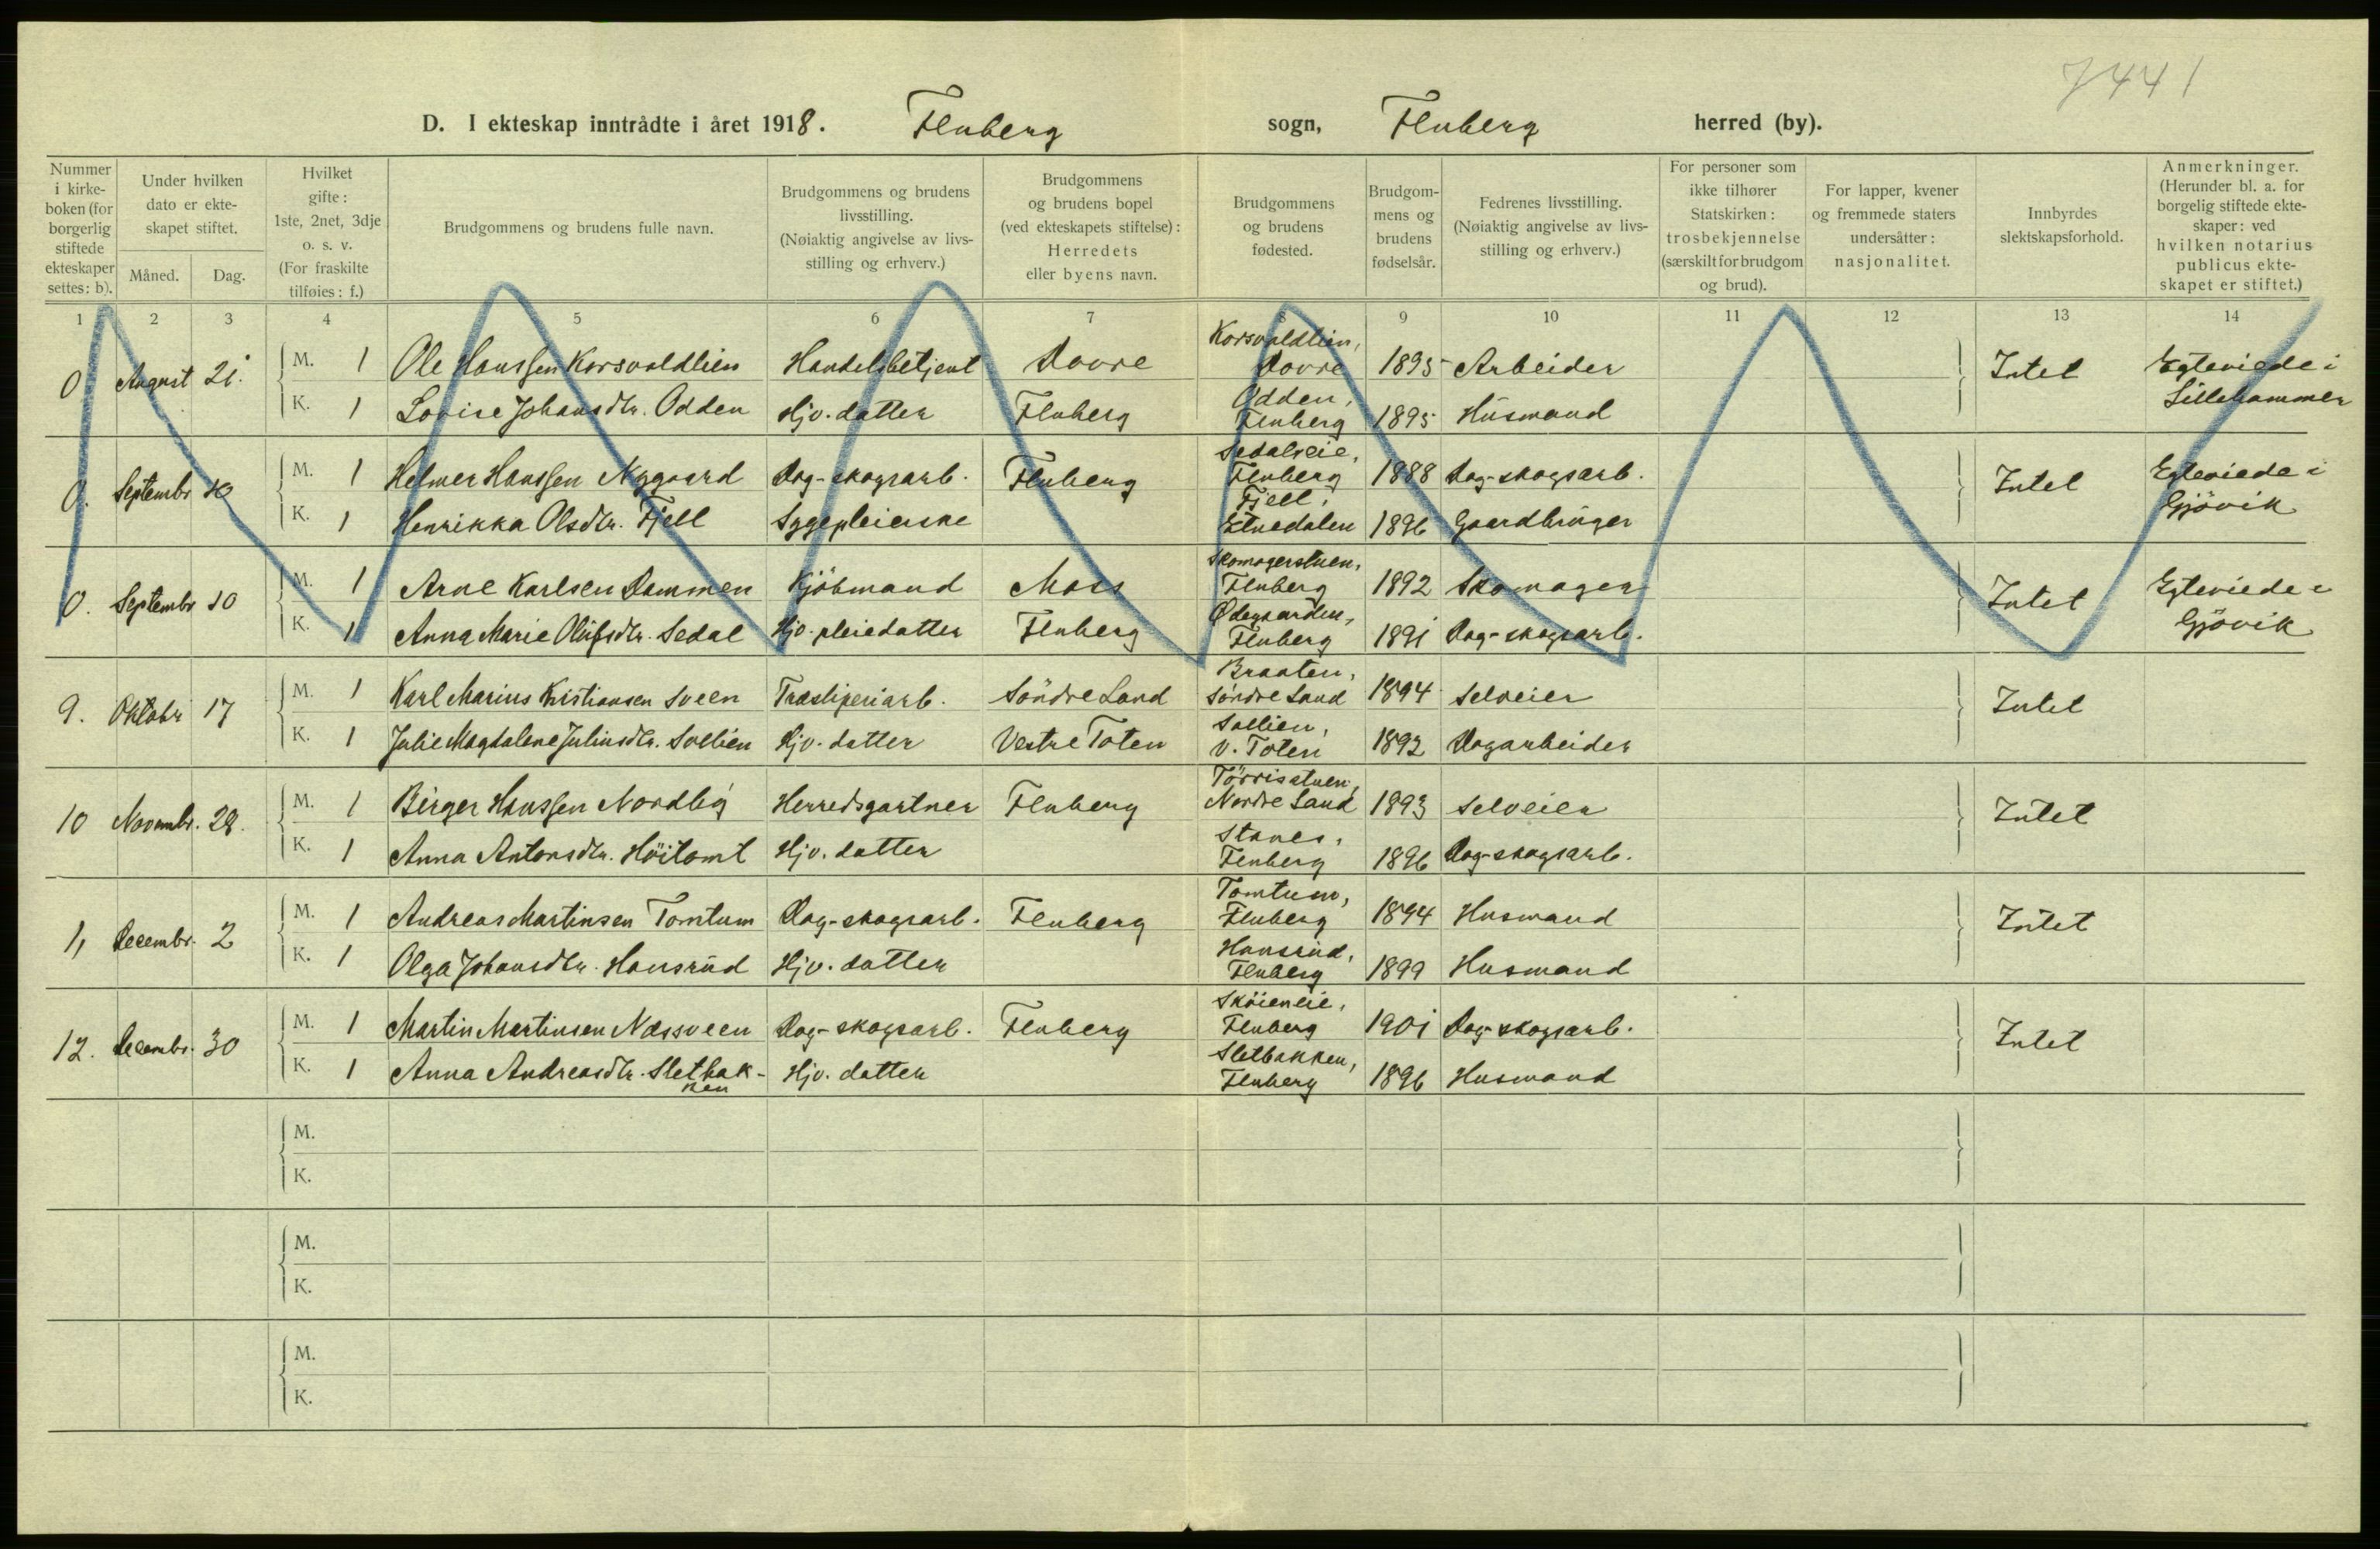 7441
D. I ekteskap inntrådte i året 1918. Fluberg sogn, Fluberg herred (by).
Nummer i kirke-boken (for borgerlig stiftede ekteskaper settes: b).
Under hvilken dato er ekte-skapet stiftet.
Måned. Dag.
Hvilket gifte: 1ste, 2net, 3dje o. s. v. (For fraskilte tilføies: f.)
Brudgommens og brudens fulle navn.
Brudgommens og brudens livsstilling. (Nøiaktig angivelse av livs-stilling og erhverv.)
Brudgommens og brudens bopel (ved ekteskapets stiftelse): Herredets eller byens navn.
Brudgommens og brudens fødested.
Brudgom-mens og brudens fødselsår.
Fedrenes livsstilling. (Nøiaktig angivelse av livs-stilling og erhverv.)
For personer som ikke tilhører Statskirken: trosbekjennelse (særskilt for brudgom og brud).
For lapper, kvener og fremmede staters undersåtter: nasjonalitet.
Innbyrdes slektskapsforhold.
Anmerkninger. (Herunder bl. a. for borgelig stiftede ekte-skaper: ved hvilken notarius publicus ekte-skapet er stiftet.)
1 2 3 4 5 6 7 8 9 10 11 12 13 14
0 August 21. M. 1 Ole Hanssen Korsvoldlien Handelsbetjent Dovre Korsvoldlien, Dovre 1895 Arbeider Intet Egteviede i Lillehammer
K. 1 Lovise Johansdtr. Odden Hjv. datter Fluberg Odden, Fluberg 1895 Husmand
0. Septembr 10 M. 1 Helmer Hanssen Nygaard Dag-skogsarb. Fluberg Sedalseie, Fluberg 1888 Dag-skogsarb. Intet Egteviede i Gjövik
K. 1 Henrikka Olsdtr. Fjell Sygepleierske Fjell, Etnedalen 1896 Gaardbruger
0. Septembr 10 M. 1 Arne Karlsen Dammen Kjöbmand Moss Skomagerstuen, Fluberg 1892 Skomager Intet Egteviede i Gjövik
K. 1 Anna Marie Olufsdtr. Sedal Hjv. pleiedatter Fluberg Ødegaarden, Fluberg 1891 Dag-skogsarb.
9. Oktobr 17 M. 1 Karl Marius Kristiansen Sveen Træsliperiarb. Söndre Land Braaten, Söndre Land 1894 Selveier Intet
K. 1 Julie Magdalene Juliusdtr. Sollien Hjv. datter Vestre Toten Sollien, V. Toten 1892 Dagarbeider
10 Novembr. 28. M. 1 Birger Hanssen Nordby Herredsgartner Fluberg Törrisstuen, Nordre Land 1893 Selveier Intet
K. 1 Anna Antonsdtr. Höitomt Hjv. datter Stanes, Fluberg 1896 Dag-skogsarb.
11 Decembr. 2 M. 1 Andreas Martinsen Tomtum Dag-skogsarb. Fluberg Tomtum, Fluberg 1894 Husmand Intet
K. 1 Olga Johansdtr. Hansrud Hjv. datter Hansrud, Fluberg 1899 Husmand
12. Decembr. 30 M. 1 Martin Martinsen Næssveen Dag-skogsarb. Fluberg Sköieneie, Fluberg 1901 Dag-skogsarb. Intet
K. 1 Anna Andreasdtr. Sletbak-ken Hjv. datter Sletbakken, Fluberg 1896 Husmand
M.
K.
M.
K.
M.
K.